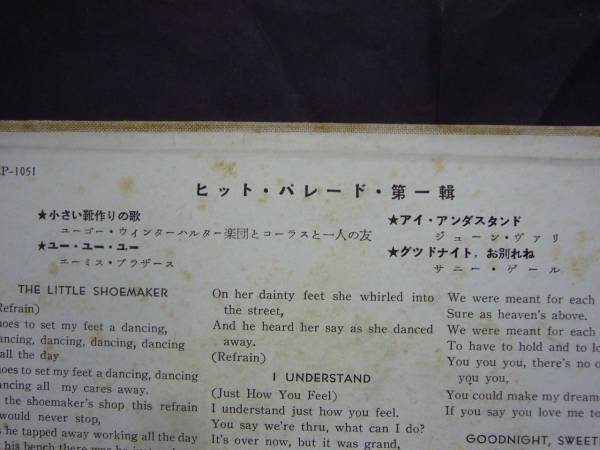 EP-1051
ヒット・パレード・第一輯
★小さい靴作りの歌
ユーゴー・ウインターハルター楽団とコーラスと一人の友
★ユー・ユー・ユー
エーミス・ブラザース
★アイ・アンダスタンド
ジューン・ヴァリ
★グツドナイト，お別れね
サニー・ゲール
THE LITTLE SHOEMAKER
Refrain)
hoes to set my feet a dancing,
ancing, dancing, dancing, dancing
all the day
hoes to set my feet a dancing, dancing
ancing all my cares away.
the shoemaker's shop this refrain
would never stop,
he tapped away working all the day
his bench there was
On her dainty feet she whirled into
the street,
And he heard her say as she danced
away.
(Refrain)
I UNDERSTAND
(Just How You Feel)
I understand just how you feel.
You say we're thru, what can I do?
It's over now, but it was grand,
We were meant for each
Sure as heaven's above.
We were meant for each
To have to hold and to
You you you, there's no
you you,
You could make my dream
If you say you love me to
GOODNIGHT, SWEETH